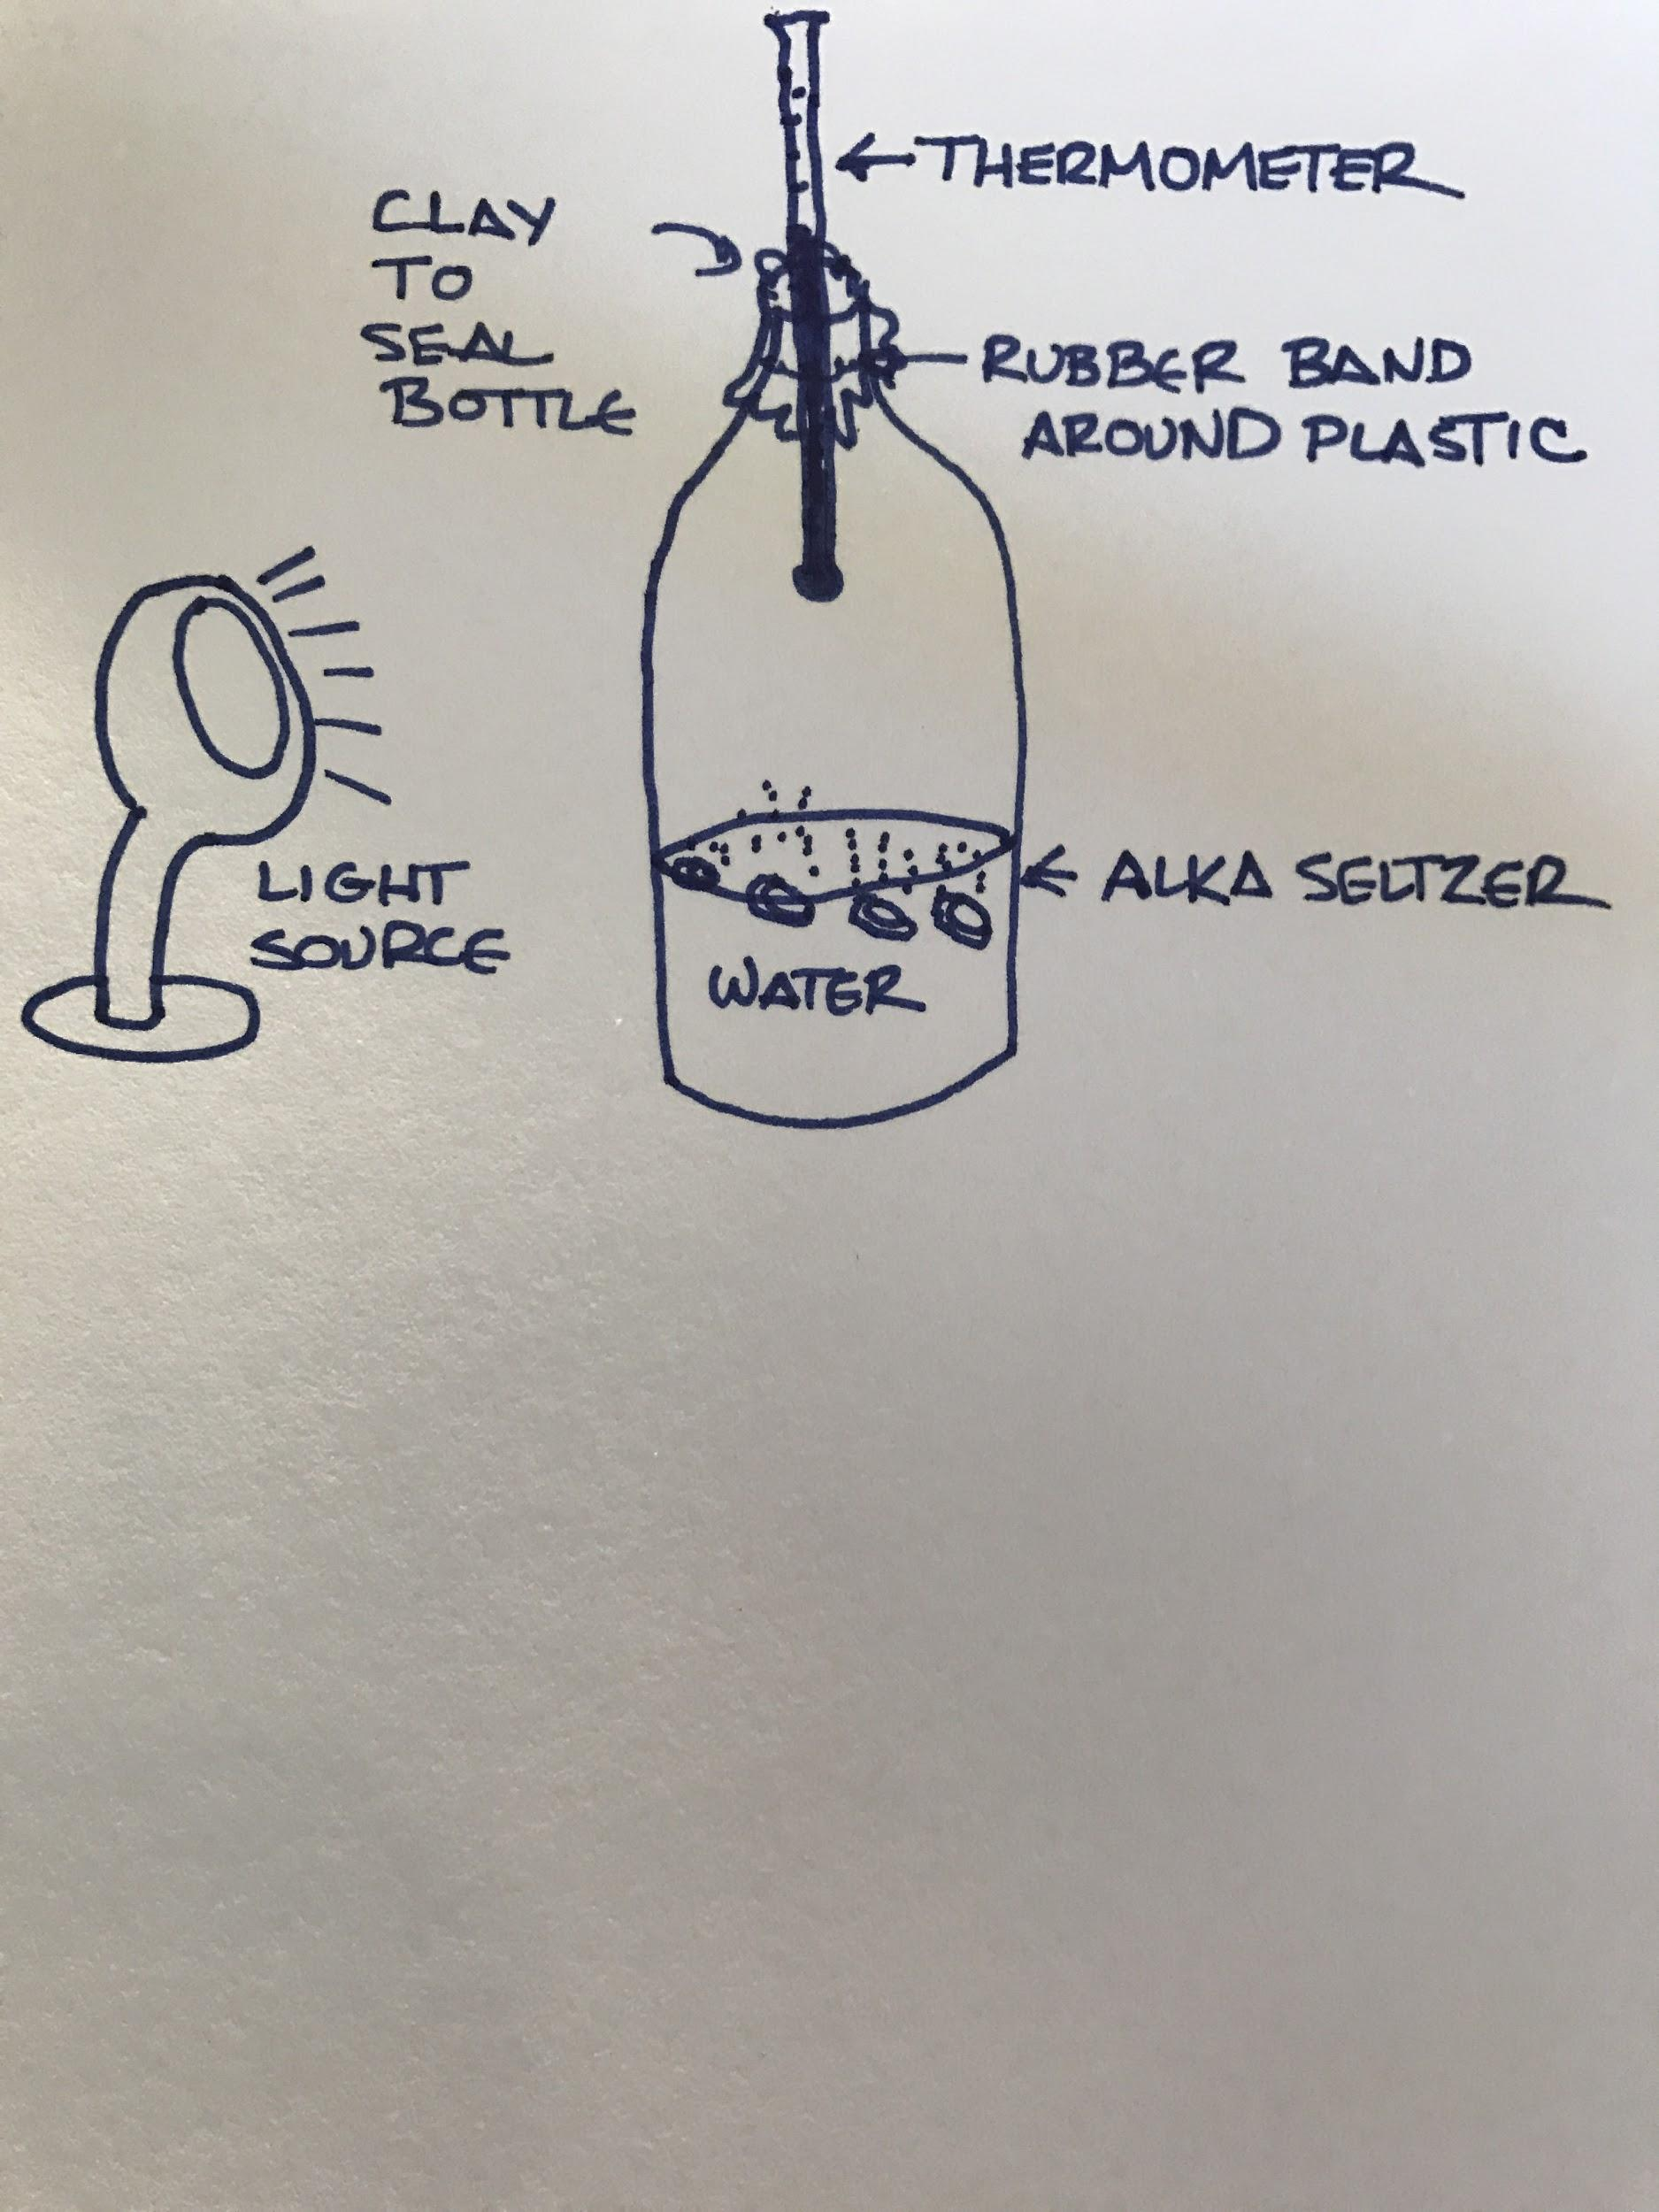 THERMOMETER
CLAY
TO
SEAL
BOTTLE
RUBBER BAND
AROUND PLASTIC
LIGHT
SOURCE
ALKA SELTZER
WATER